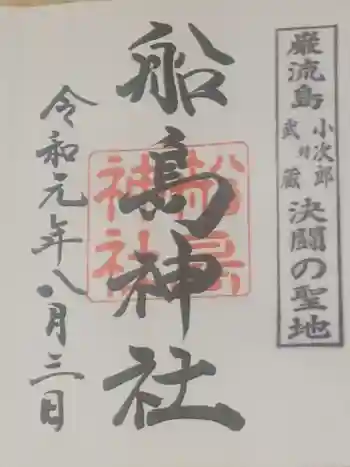 巌流島 小次郎 武蔵 決闘の聖地
船島神社
船島
神社
令和元年八月三日